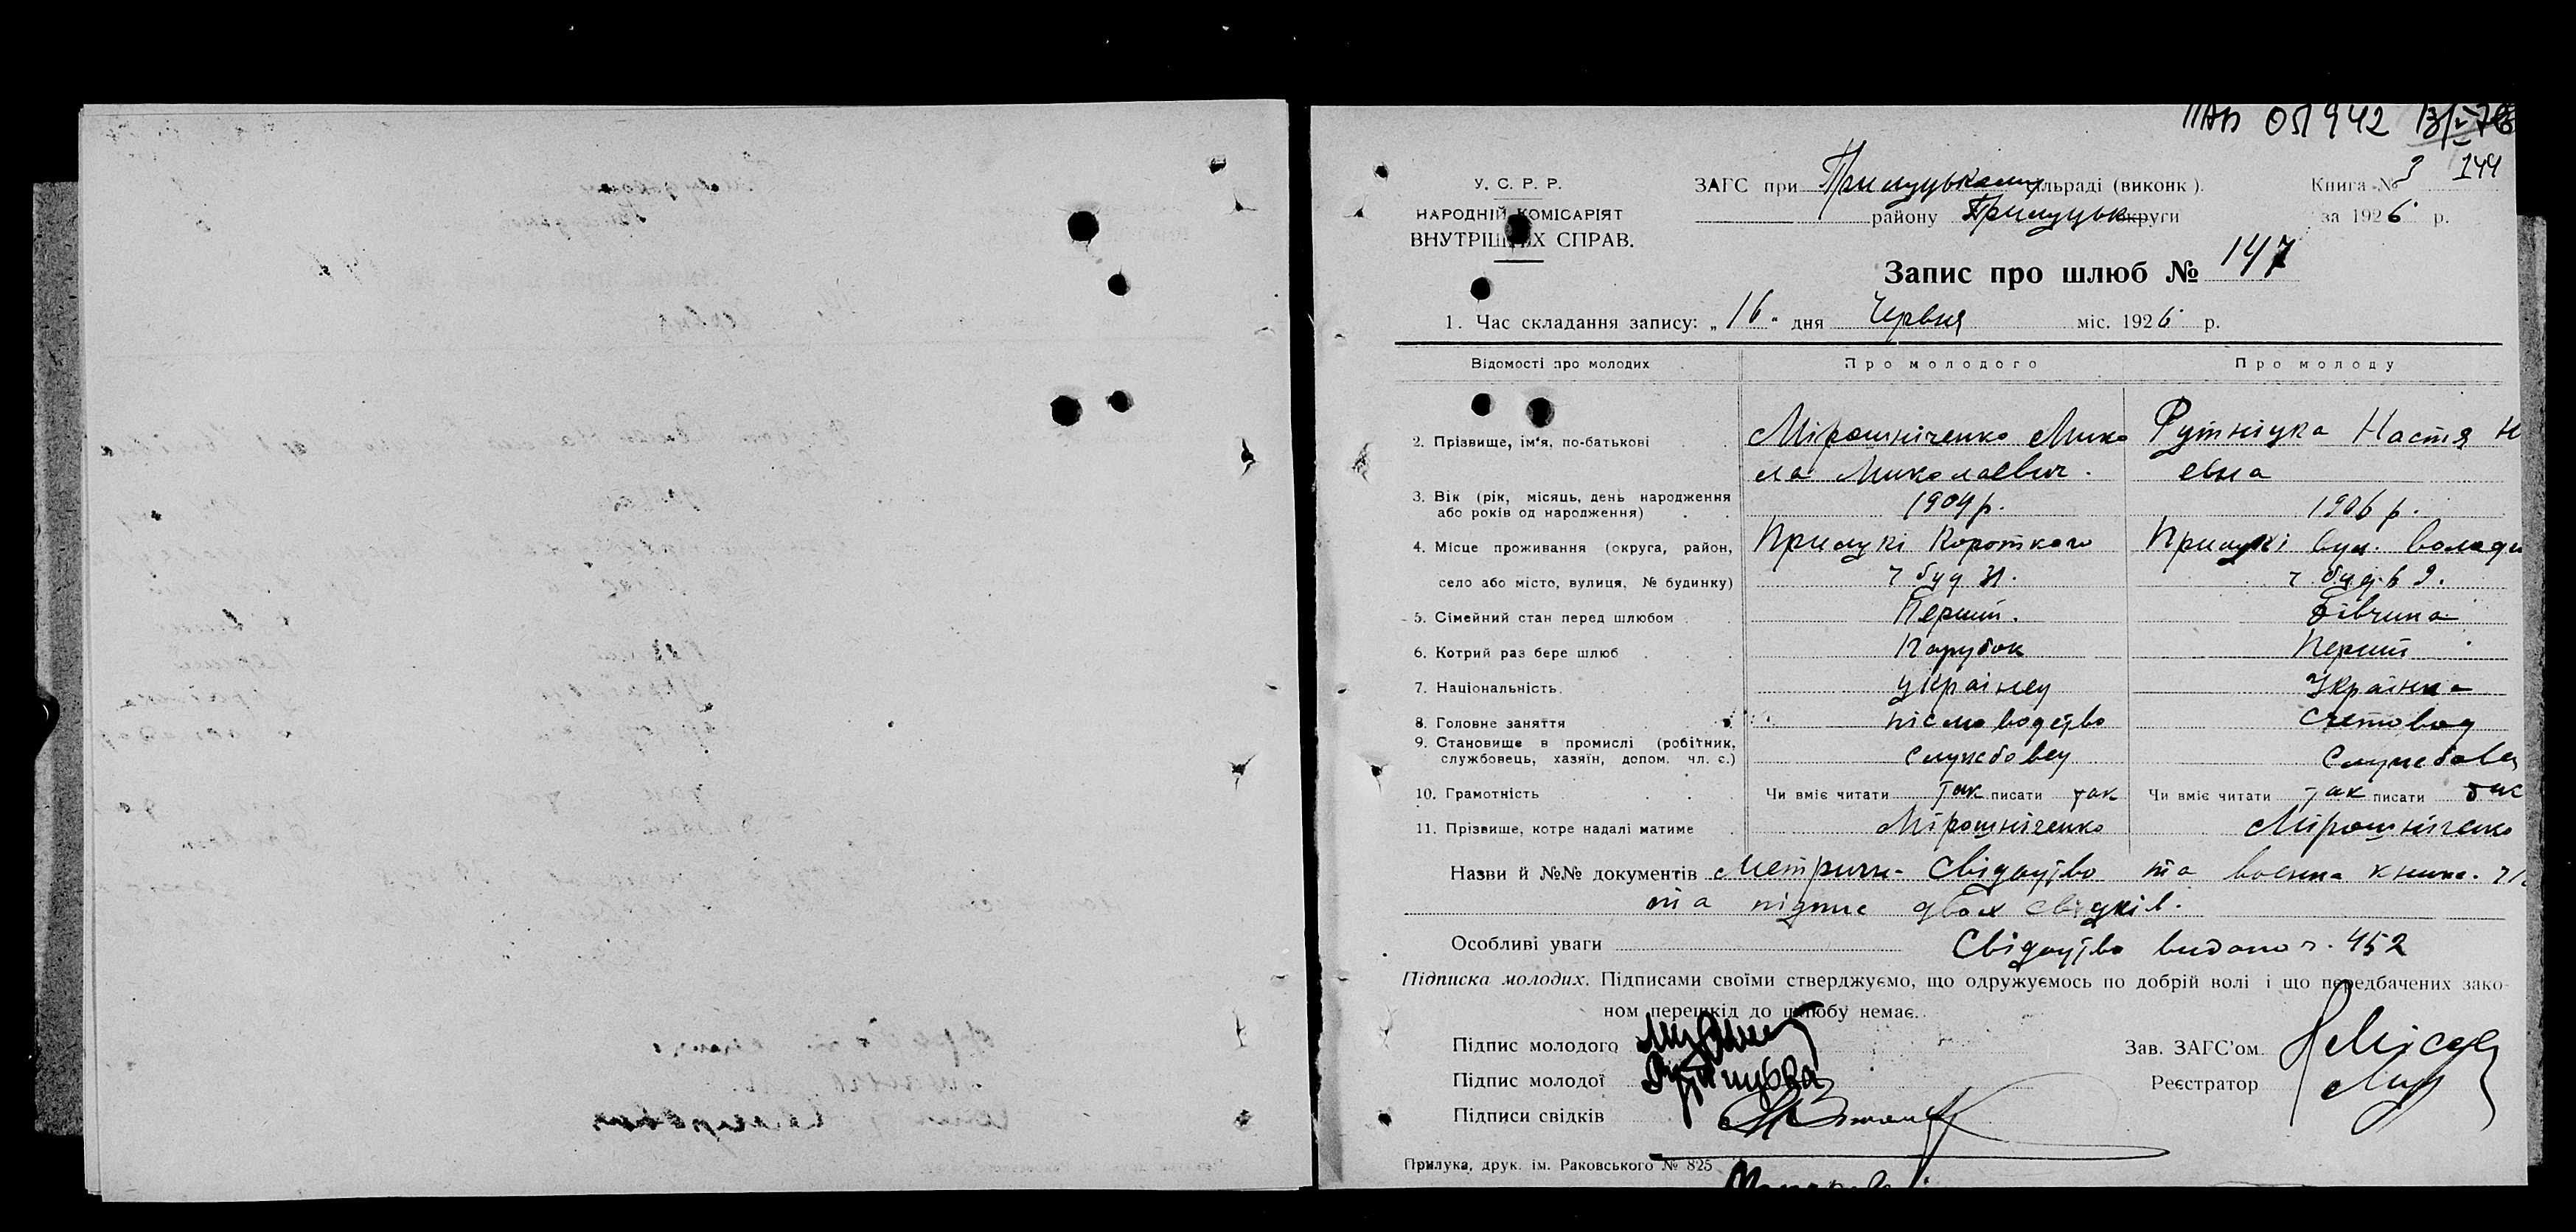 051942
У. С. Р. Р.
ЗАГС при Прилуцькому ільраді (виконк).
Книга № 3 144
НАРОДНІЙ КОМІСАРІЯТ
району Прилуцьк округи
за 1926 р.
ВНУТРІШНІХ СПРАВ.
Запис про шлюб № 147
1. Час складання запису: „16" дня Червня міс. 1926 р.
Відомості про молодих Про молодого Про молоду
2. Прізвище, ім'я, по-батькові Мірошніченко Мико Рутніцка Настя
ла Миколаевич. евна
3. Вік (рік, місяць, день народження
або років од народження) 1904 р. 1906 р.
4. Місце проживання (округа, район, Прилукі Короткого Прилукі вул. Володи
село або місто, вулиця, № будинку) ч буд 31. ч буд. 9.
5. Сімейний стан перед шлюбом Перший. Дівчина
6. Котрий раз бере шлюб Парубок Перший
7. Національність. Українец Українка
8. Головне заняття пісмоводство Счетовод
9. Становище в промислі (робітник,
службовець, хазяїн, допом. чл. с.) Службовец Службовец
10. Грамотність Чи вміє читати так писати так Чи вміє читати так писати так
11. Прізвище, котре надалі матиме Мірошніченко Мірошніченко
Назви й №№ документів Метричн. Свідоцтво та военна книж.
та підпис двох свідків.
Особливі уваги Свідоцтво видано ч. 452
Підписка молодих. Підписами своїми стверджуємо, що одружуємось по добрій волі і що передбачених зако-
ном перешкід до шлюбу немає.
Підпис молодого
Зав. ЗАГС'ом
Підпис молодої
Реєстратор
Підписи свідків
Прилука, друк. ім. Раковського № 825